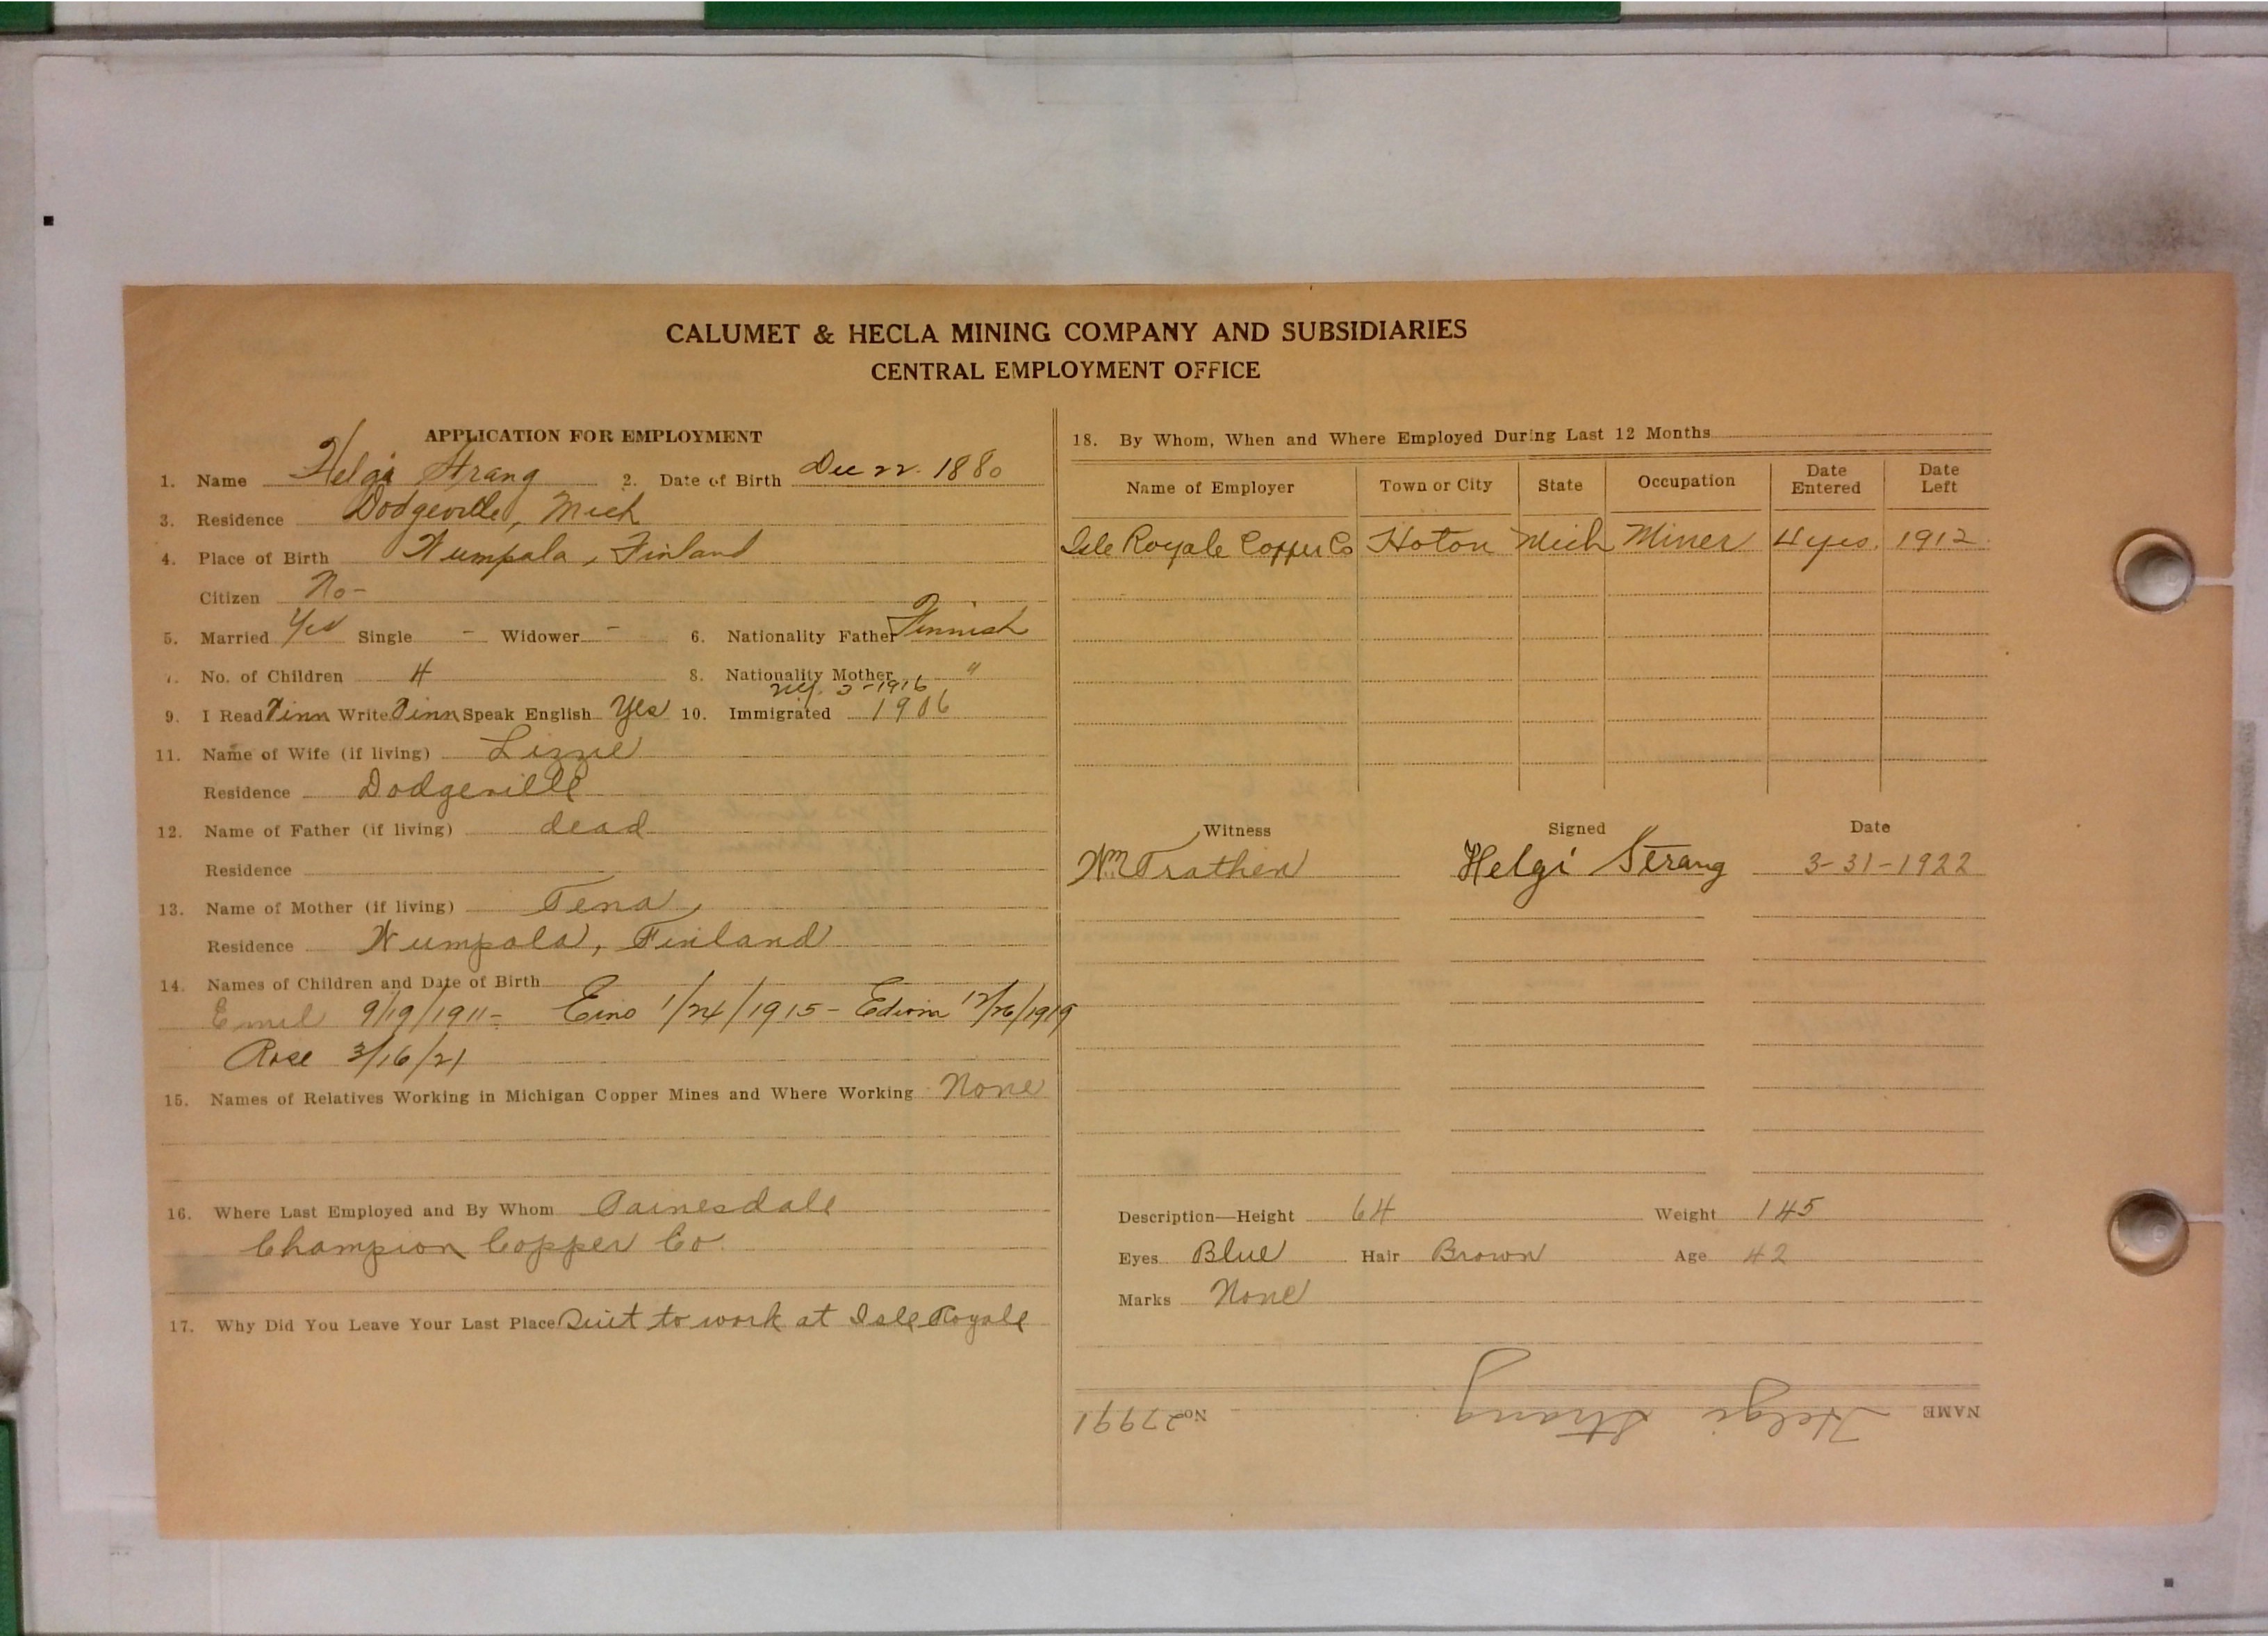 CALUMET & HECLA MINING COMPANY AND SUBSIDIARIES
CENTRAL EMPLOYMENT OFFICE
APPLICATION FOR EMPLOYMENT
1. Name Helgi Strang 2. Date of Birth Dec 22. 1880
3. Residence Dodgeville, Mich
4. Place of Birth Numpala, Finland
Citizen No -
5. Married Yes Single - Widower - 6. Nationality Father Finnish
7. No. of Children 4 8. Nationality Mother "
3-1916
9. I Read Finn Write Finn Speak English Yes 10. Immigrated 1906
11. Name of Wife (if living) Lizzie
Residence Dodgeville
12. Name of Father (if living) dead
Residence
13. Name of Mother (if living) Tena
Residence Numpala, Finland
14. Names of Children and Date of Birth
Emil 9/19/1911 - Eino 1/24/1915 - Edwin 12/26/1919
Rose 3/16/21
15. Names of Relatives Working in Michigan Copper Mines and Where Working None
16. Where Last Employed and By Whom Painesdale
Champion Copper Co.
17. Why Did You Leave Your Last Place Quit to work at Isle Royale
18. By Whom, When and Where Employed During Last 12 Months
Name of Employer Town or City State Occupation Date Entered Date Left
Isle Royale Copper Co Hoton Mich Miner 4 yrs. 1912
Witness Signed Date
Wm Trathen Helgi Strang 3-31-1922
Description—Height 64 Weight 145
Eyes Blue Hair Brown Age 42
Marks None
NAME Helgi Strang No 27991